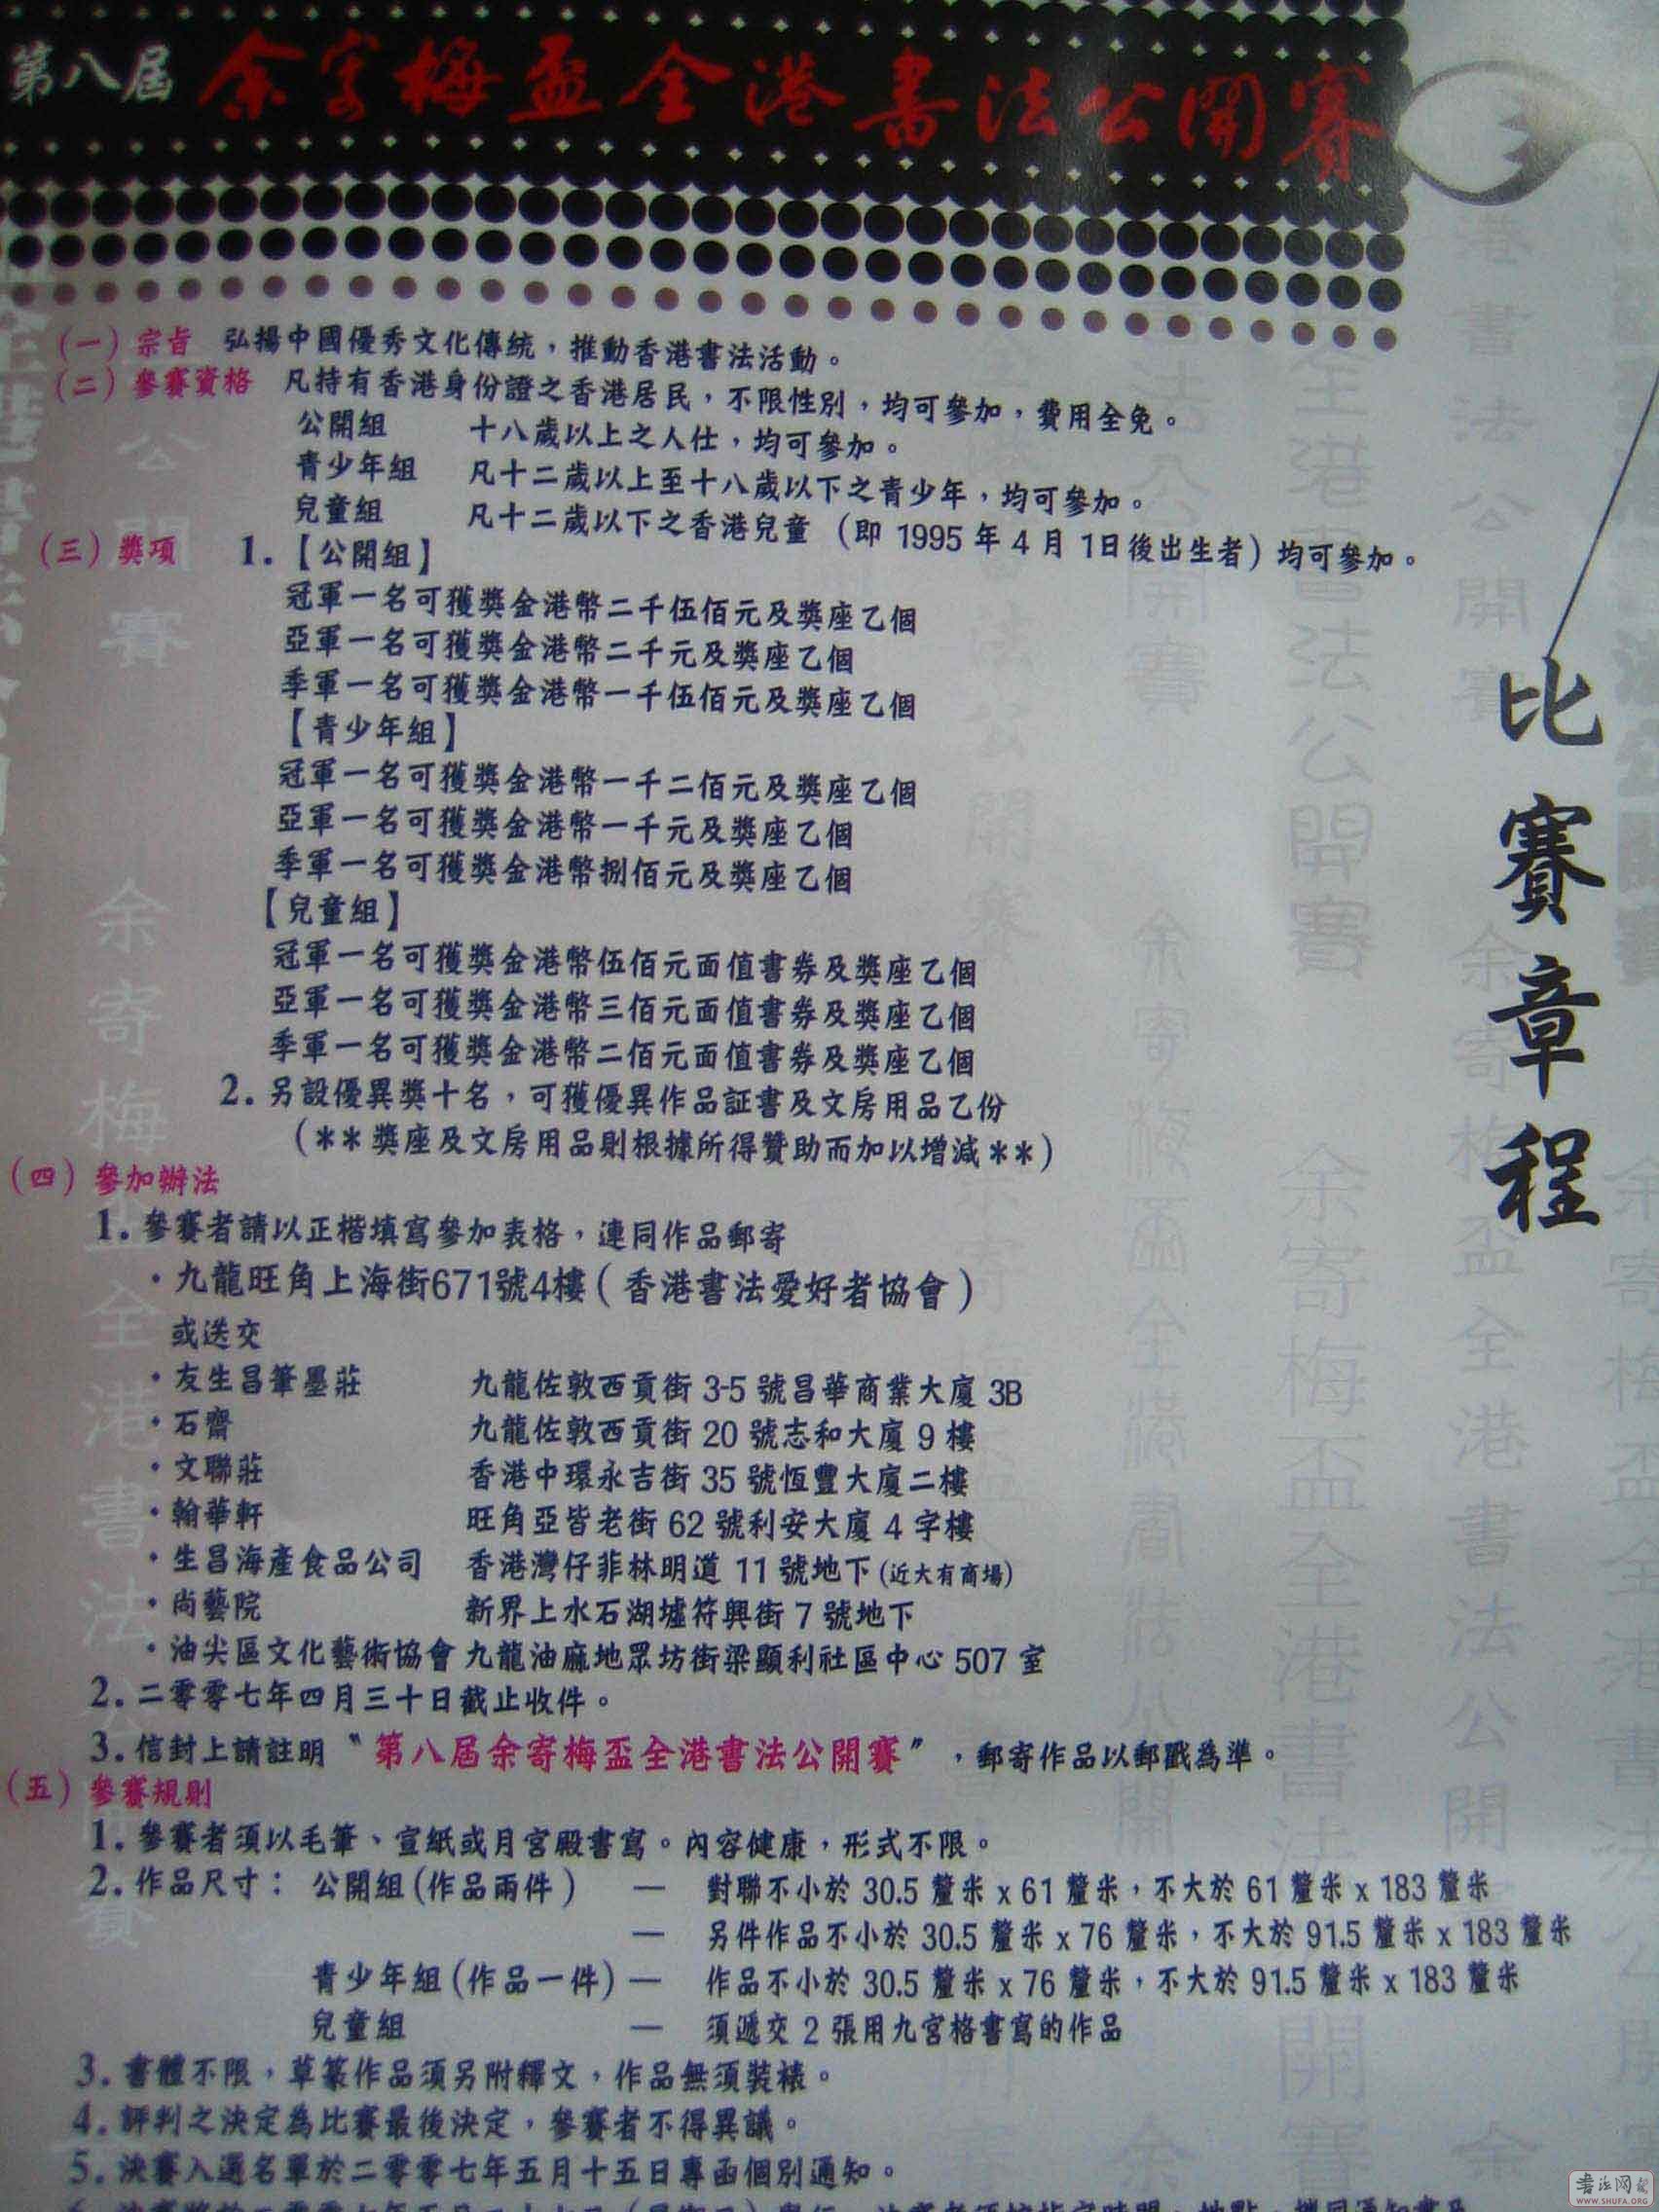 第八屆 余寄梅盃全港書法公開賽
比賽章程
(一) 宗旨 弘揚中國優秀文化傳統，推動香港書法活動。
(二) 參賽資格 凡持有香港身份證之香港居民，不限性別，均可參加，費用全免。
公開組 十八歲以上之人仕，均可參加。
青少年組 凡十二歲以上至十八歲以下之青少年，均可參加。
兒童組 凡十二歲以下之香港兒童 (即 1995 年 4 月 1日後出生者) 均可參加。
(三) 獎項 1.【公開組】
冠軍一名可獲獎金港幣二千伍佰元及獎座乙個
亞軍一名可獲獎金港幣二千元及獎座乙個
季軍一名可獲獎金港幣一千伍佰元及獎座乙個
【青少年組】
冠軍一名可獲獎金港幣一千二佰元及獎座乙個
亞軍一名可獲獎金港幣一千元及獎座乙個
季軍一名可獲獎金港幣捌佰元及獎座乙個
【兒童組】
冠軍一名可獲獎金港幣伍佰元面值書券及獎座乙個
亞軍一名可獲獎金港幣三佰元面值書券及獎座乙個
季軍一名可獲獎金港幣二佰元面值書券及獎座乙個
2. 另設優異獎十名，可獲優異作品証書及文房用品乙份
(＊＊獎座及文房用品則根據所得贊助而加以增減＊＊)
(四) 參加辦法
1. 參賽者請以正楷填寫參加表格，連同作品郵寄
·九龍旺角上海街671號4樓（香港書法愛好者協會）
或送交
·友生昌筆墨莊 九龍佐敦西貢街 3-5 號昌華商業大廈 3B
·石齋 九龍佐敦西貢街 20 號志和大廈 9 樓
·文聯莊 香港中環永吉街 35 號恆豐大廈二樓
·翰華軒 旺角亞皆老街 62 號利安大廈 4 字樓
·生昌海產食品公司 香港灣仔菲林明道 11 號地下 (近大有商場)
·尚藝院 新界上水石湖墟符興街 7 號地下
·油尖區文化藝術協會 九龍油麻地眾坊街梁顯利社區中心 507 室
2. 二零零七年四月三十日截止收件。
3. 信封上請註明〝第八屆余寄梅盃全港書法公開賽〞，郵寄作品以郵戳為準。
(五) 參賽規則
1. 參賽者須以毛筆、宣紙或月宮殿書寫。內容健康，形式不限。
2. 作品尺寸： 公開組 (作品兩件) — 對聯不小於 30.5 釐米 x 61 釐米，不大於 61 釐米 x 183 釐米
— 另件作品不小於 30.5 釐米 x 76 釐米，不大於 91.5 釐米 x 183 釐米
青少年組 (作品一件) — 作品不小於 30.5 釐米 x 76 釐米，不大於 91.5 釐米 x 183 釐米
兒童組 — 須遞交 2 張用九宮格書寫的作品
3. 書體不限，草篆作品須另附釋文，作品無須裝裱。
4. 評判之決定為比賽最後決定，參賽者不得異議。
5. 決賽入選名單於二零零七年五月十五日專函個別通知。
书法网
WWW.SHUFA.ORG